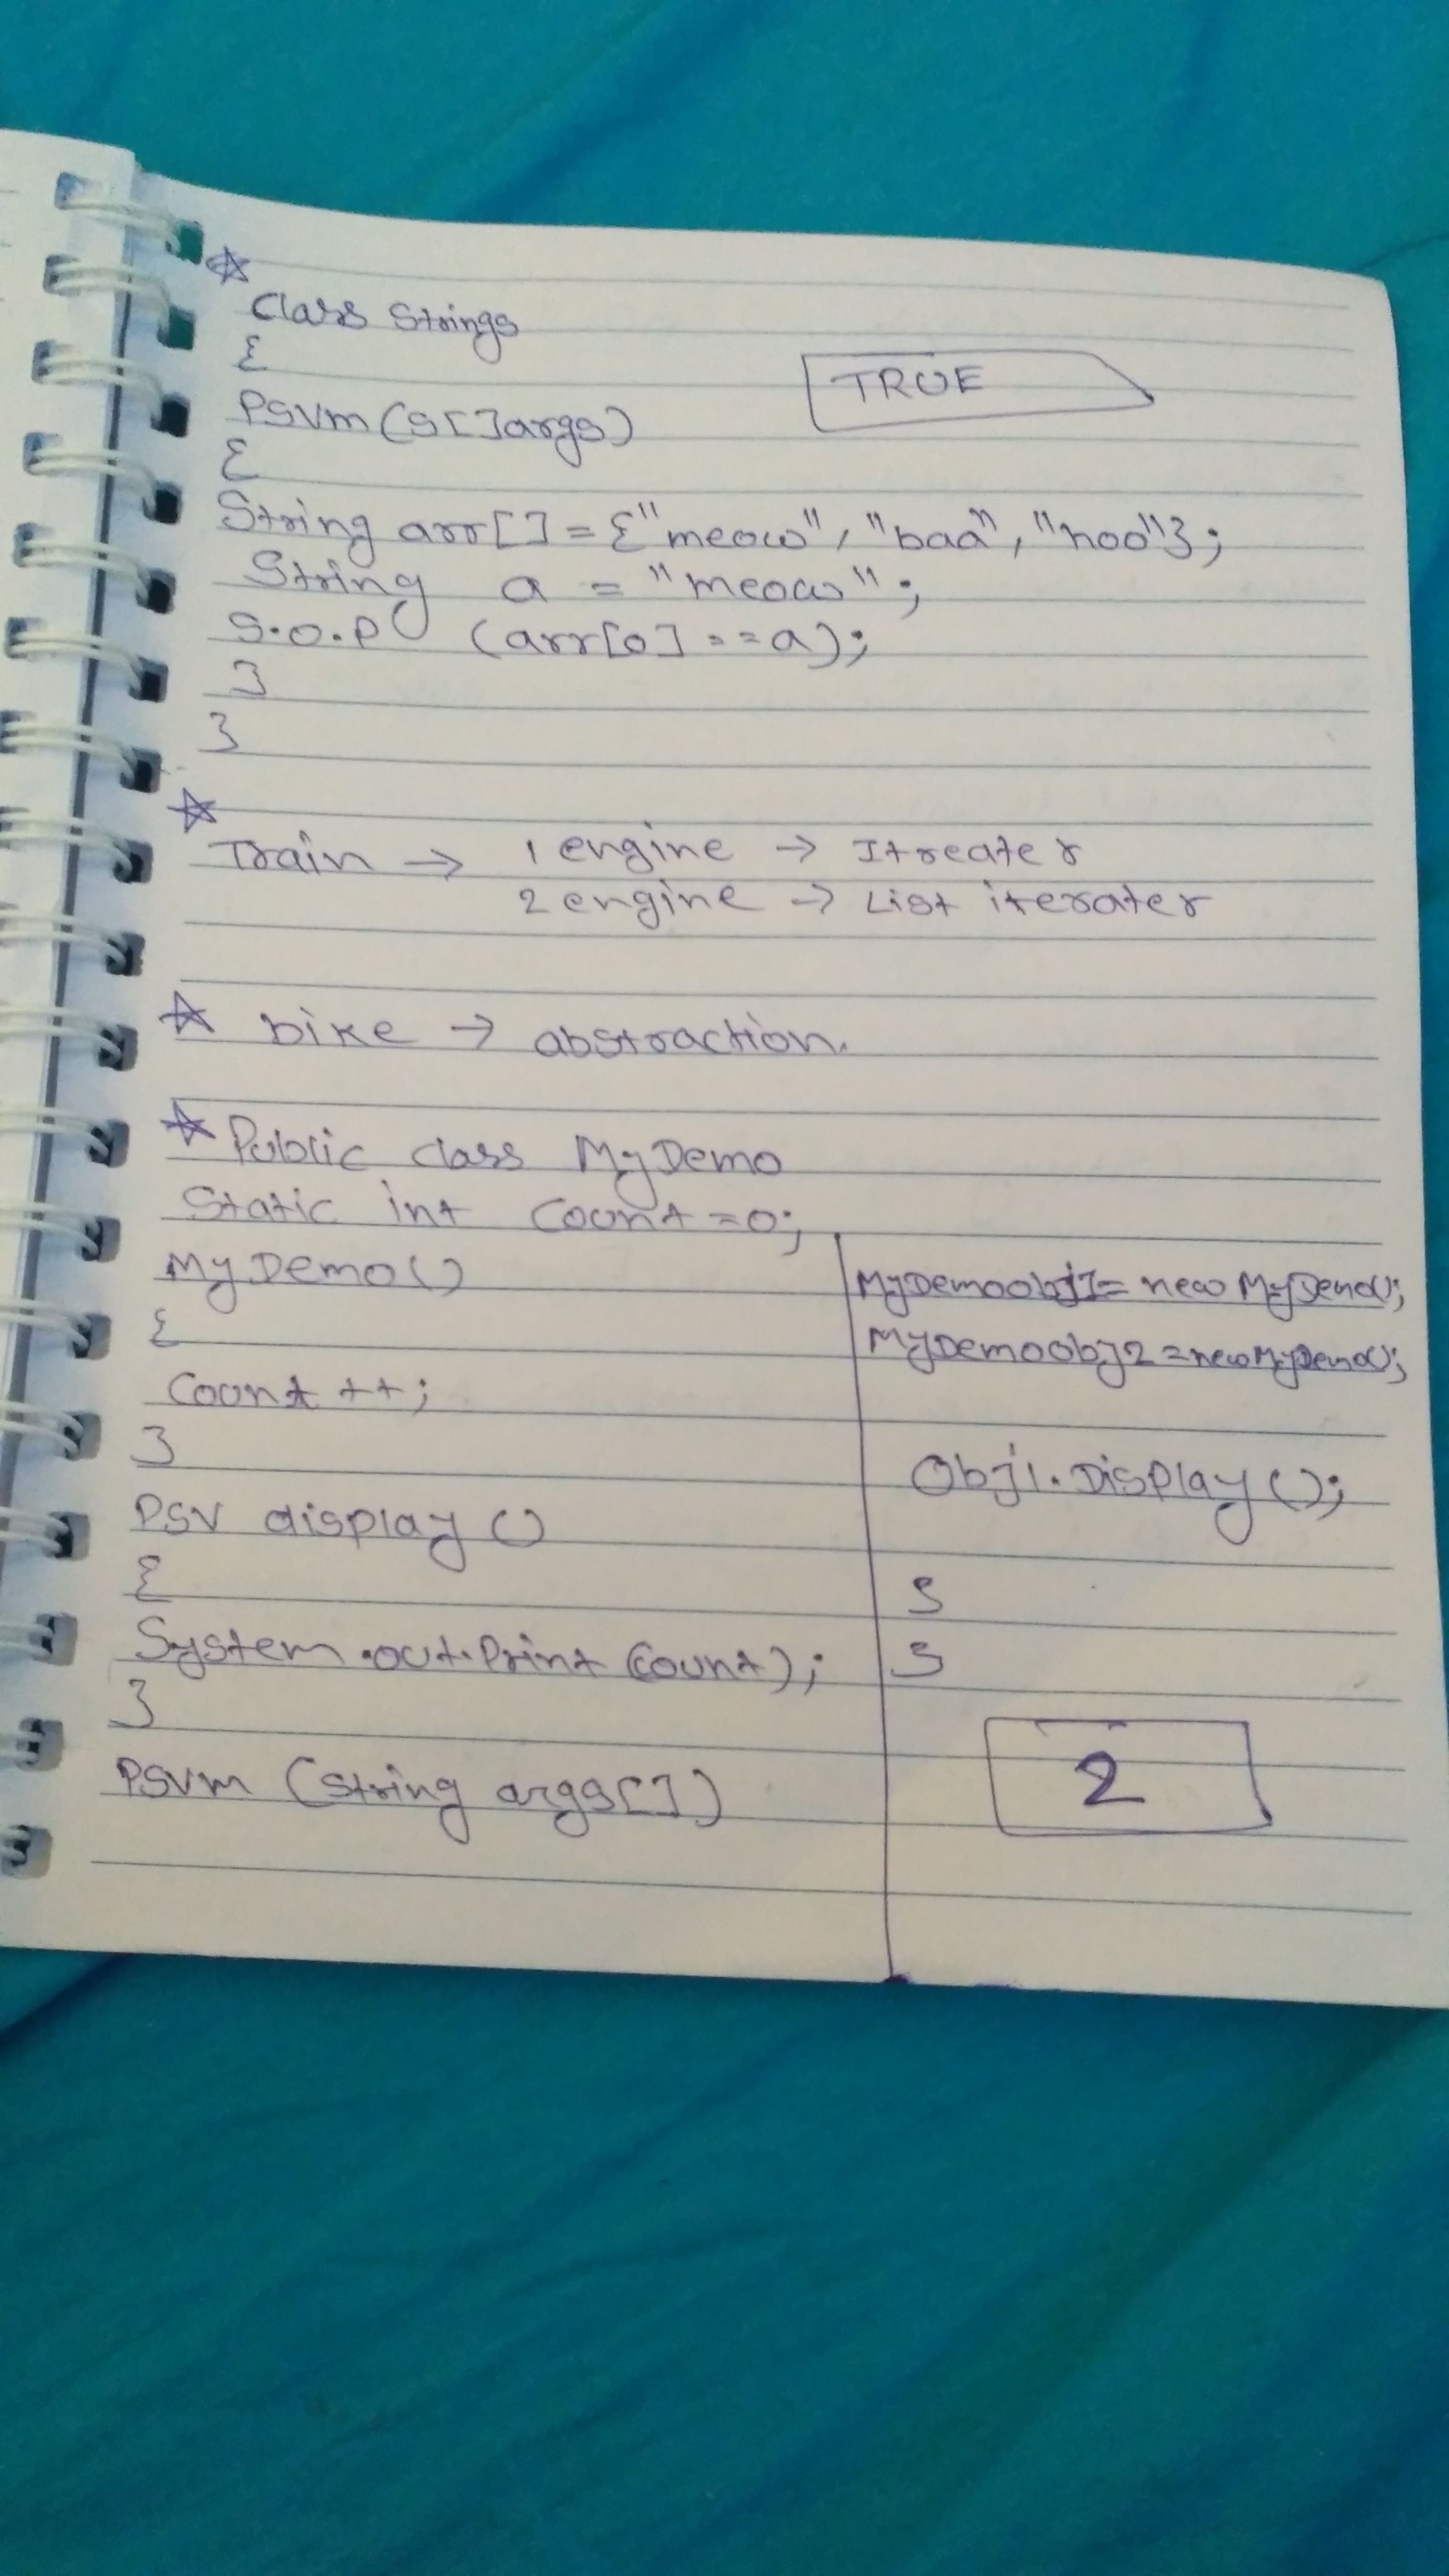 Class Strings
{
TRUE
PSVm (S[]args)
{
String arr[] = {"meow", "baa", "hoo"};
String a = "meow";
S.o.P (arr[0] == a);
}
}
Train → 1 engine → Itreater
2 engine → List iterater
bike → abstraction.
Public class MyDemo
Static int Count = 0;
MyDemo()
{
Count ++;
}
PSV display ()
{
System.out.Print (Count);
}
PSVm (String args[])
MyDemo obj1 = new MyDemo();
MyDemo Obj2 = new MyDemo();
Obj1.Display ();
}
}
2